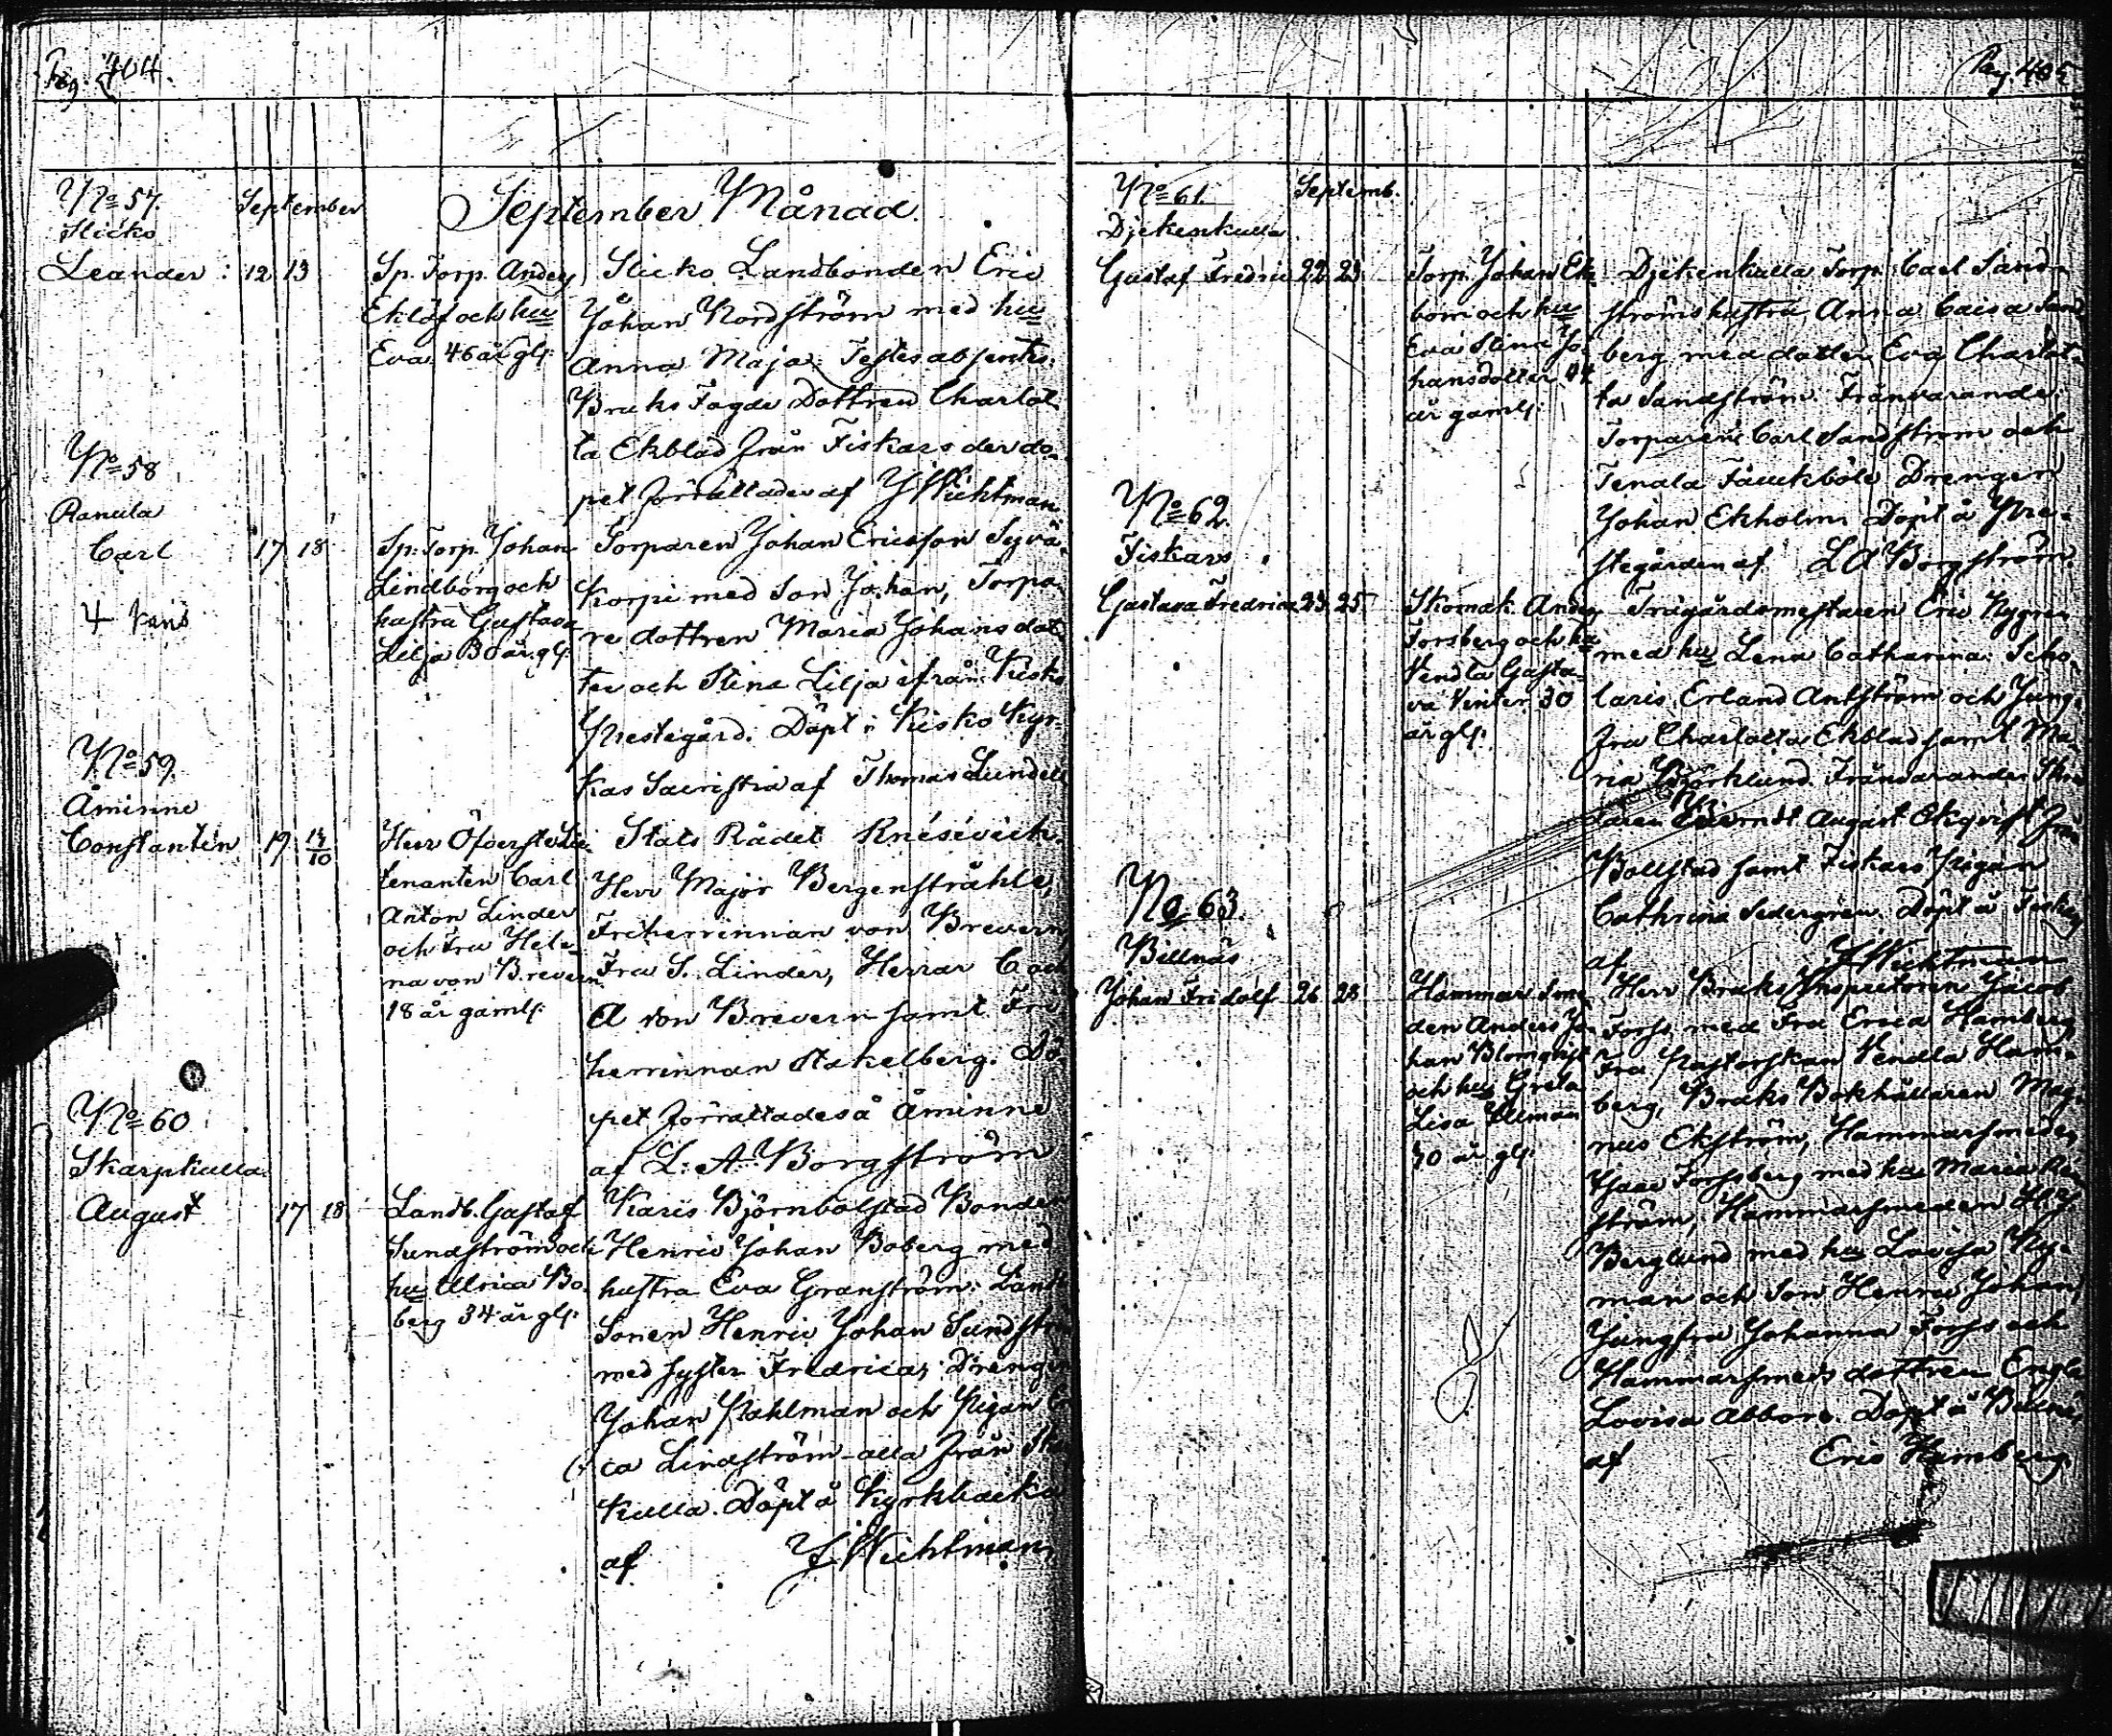 Pag. 404.
No 57.
Slicko
Leander
September
12 13
September Månad.
Sp. Torp. Anders
Eklöf och hu
Eva 46 år gl:
Slicko Landbonden Eric
Johan Nordström med hu
Anna Maja. Testes absentes:
Bruks Fogde Dottren Charlot
ta Ekblad från Fiskars der do-
pet förrättades af J Wichtman
No 58
Ranula
Carl
4 kans
17 18
Sp: Torp. Johan
Lindborg och
hustru Gustava
Lilja 30 år gl:
Torparen Johan Ericsson Syvä-
korpi med Son Johan, Torpa-
re dottren Maria Johansdot
ter och Stina Lilja ifrån Kisko
Prestegård. Döpt i Kisko Kyr-
kas Sacristia af Thomas Lundell
No 59.
Åminne
Constantin
19 14/10
Herr Öfverste Lieu-
tenanten Carl
Anton Linder
och Fru Hele-
na von Brevern
18 år gaml:
Stats Rådet Knésévich.
Herr Major Bergenstråhle,
Friherrinnan von Brevern,
Fru S. Linder, Herrar C och
A von Brevern samt Fri
herrinnan Stakelberg. Dö-
pet förrättades å Åminne
af L: A: Borgström
No 60
Skarpkulla
August
17 18
Landb. Gustaf
Sundström och
hu Ulrica Bo-
berg 34 år gl:
Karis Björnbolstad Bonden
Henric Johan Boberg med
hustru Eva Granström: Landb
Sonen Henric Johan Sundström
med syster Fredrica, Drengen
Johan Pahlman och Pigan
ca Lindström alla från
kulla. Döpt å Kyrkbacka
af J. Wichtman
Pag. 405
No 61.
Djekenkulla
Gustaf Fredric
Septemb.
22 23
Torp. Johan Ek-
bom och hu
Eva Stina Jo-
hansdotter 44
år gaml:
Djekenkulla Torp. Carl Sand-
ströms hustru Anna Caisa Sand
berg med dotter Eva Charlot-
ta Sandström. Frånvarande:
Torparen Carl Sandström och
Tenala Drengen
Johan Ekholm. Döpt å Pre-
stegården af L A Borgström.
No 62.
Fiskars
Gustava Fredrica
23 25
Skomak. Anders
Forsberg och hu
Vendla Gusta-
va Vinter 30
år gl:
Trägårdsmestaren Eric Nygren
med hu Lena Catharina: Scho-
laris Erland Antström och Jung-
fru Charlotta Ekblad samt Ma-
ria Björklund. Frånvarande:
August Ekqvist från
Bollstad samt Fiskars Pigan
Cathrina Sedergren. Döpt å Fiskars
af J Wichtman
No 63.
Billnäs
Johan Fridolf
26 28
Hammar Sme-
den Anders Jo-
han Blomqvist
och hu Greta
Lisa Ullman
40 år gl:
Herr Bruks Inspectoren Jacob
Forss med Fru Erica Hamberg
Fru Pastorskan Vendla Ham-
berg, Bruks Bokhållaren Mag-
nus Ekström, Hammarsmeden
Isaac Forssberg med hu Maria
ström, Hammarsmeden
Berglund med hu Lovisa Ny-
man och Son Henric Johan,
Jungfru Johanna Forss och
Hammarsmeds dottren Engla
Lovisa Abborr. Döpt å Billnäs
af Eric Hamberg.